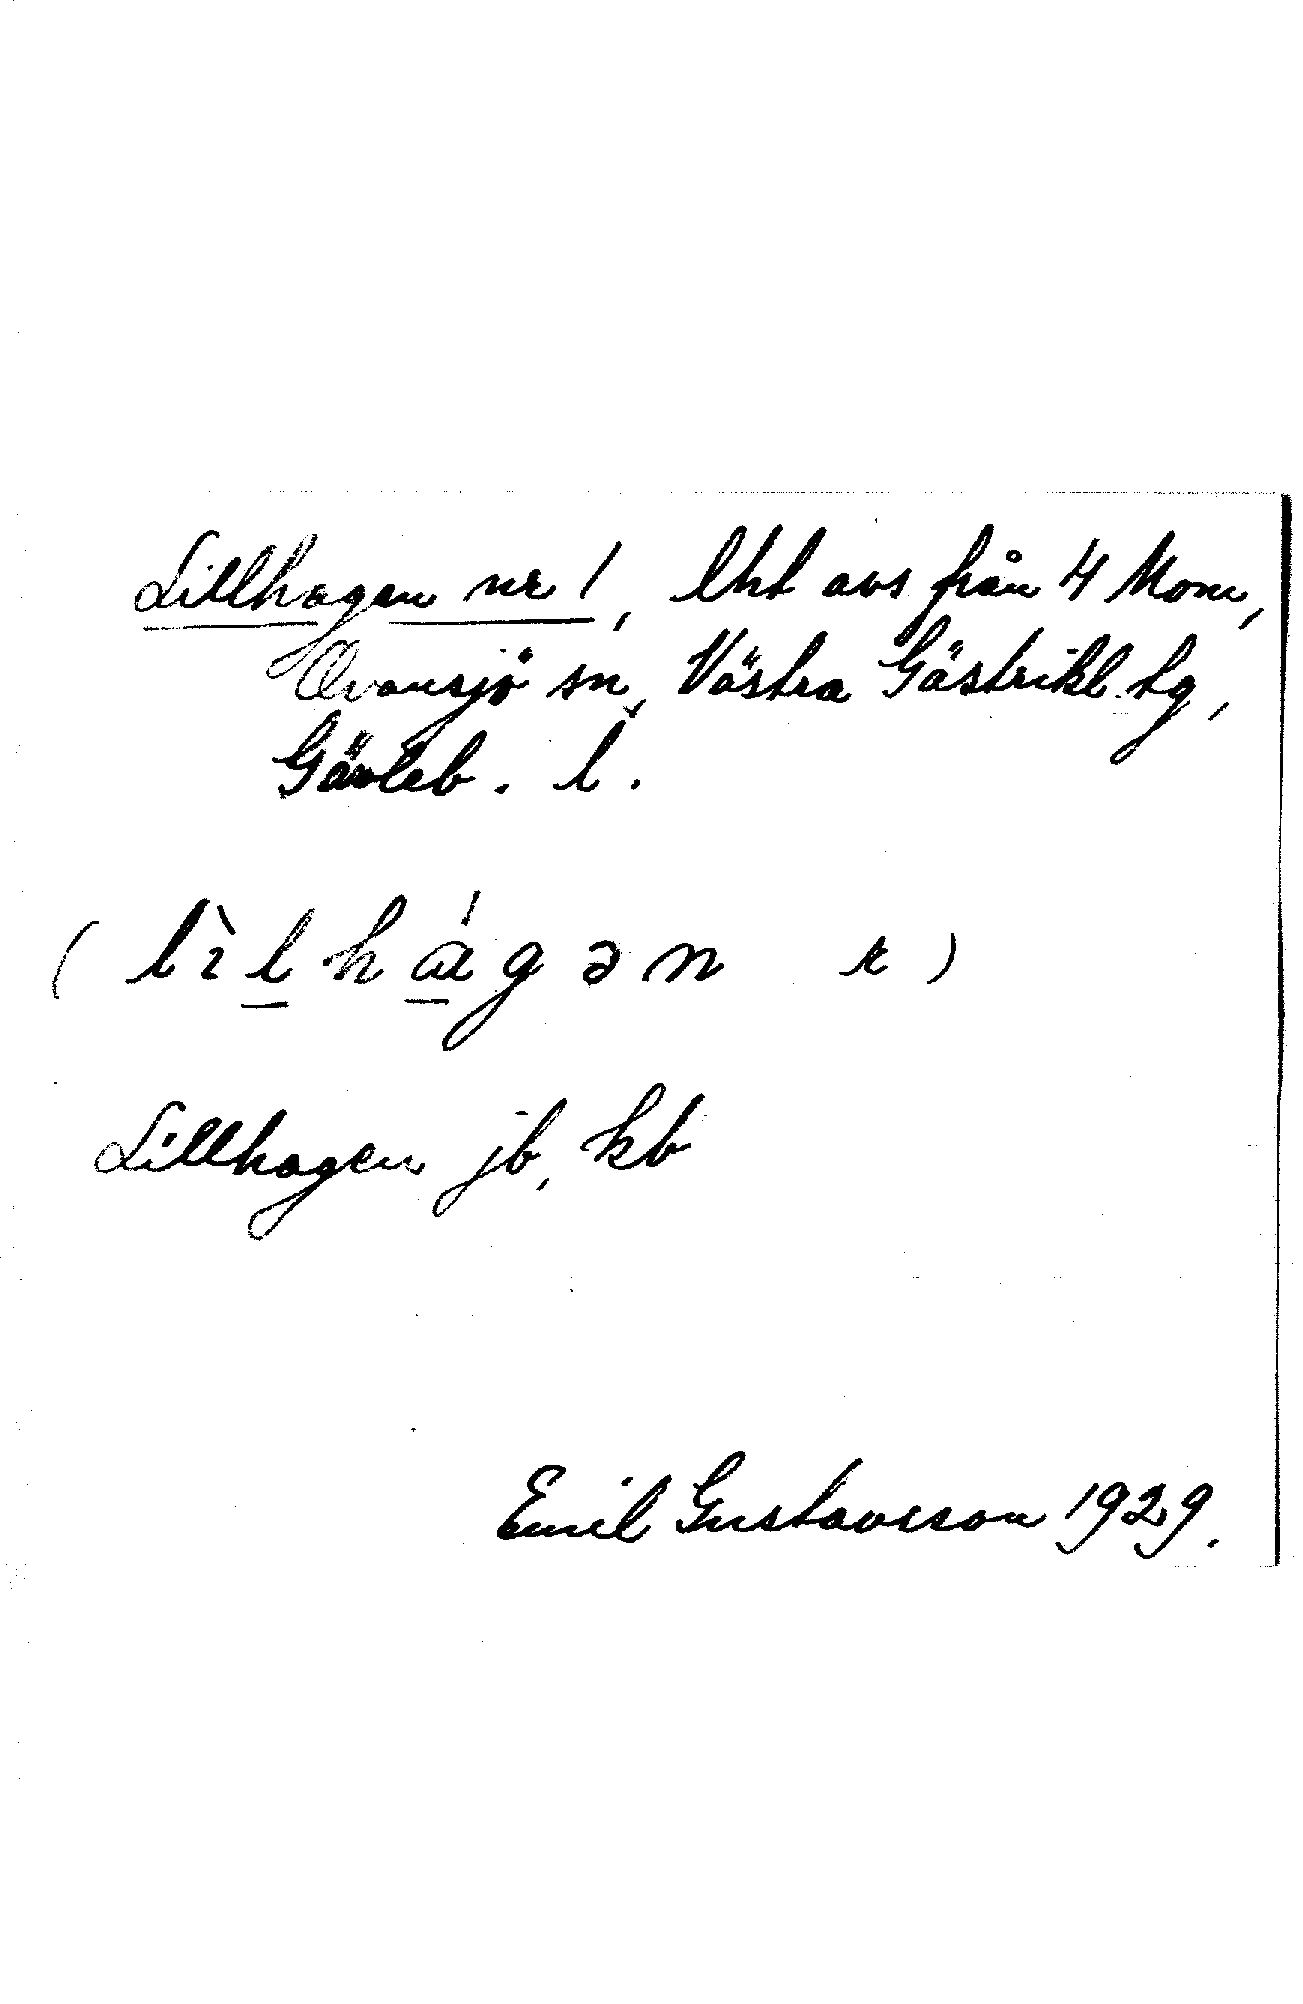 Lillhagen nr 1, lht avs från 4 Mom,
Ovansjö sn, Västra Gästrikl tg,
Gävleb. l.
(lìlhágən r)
Lillhagen jb, kb
Emil Gustavsson 1929.